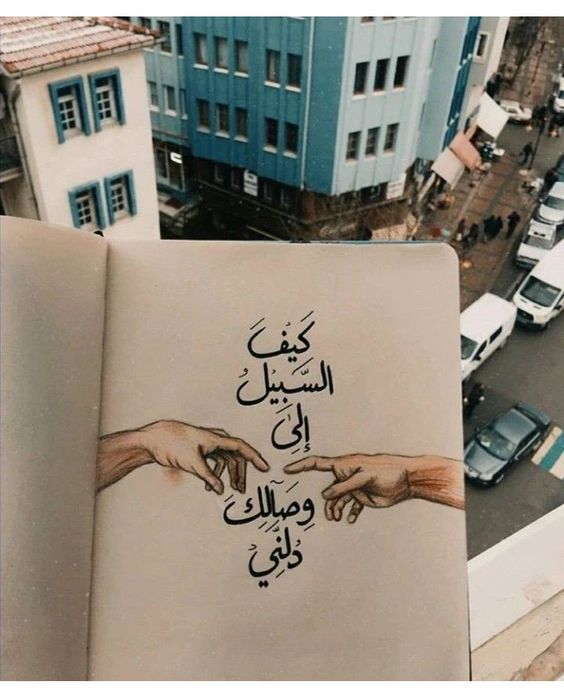 كَيفَ
السَّبِيْلُ
إِلىَ
وِصَآلِكِ
دُلنَّيِ